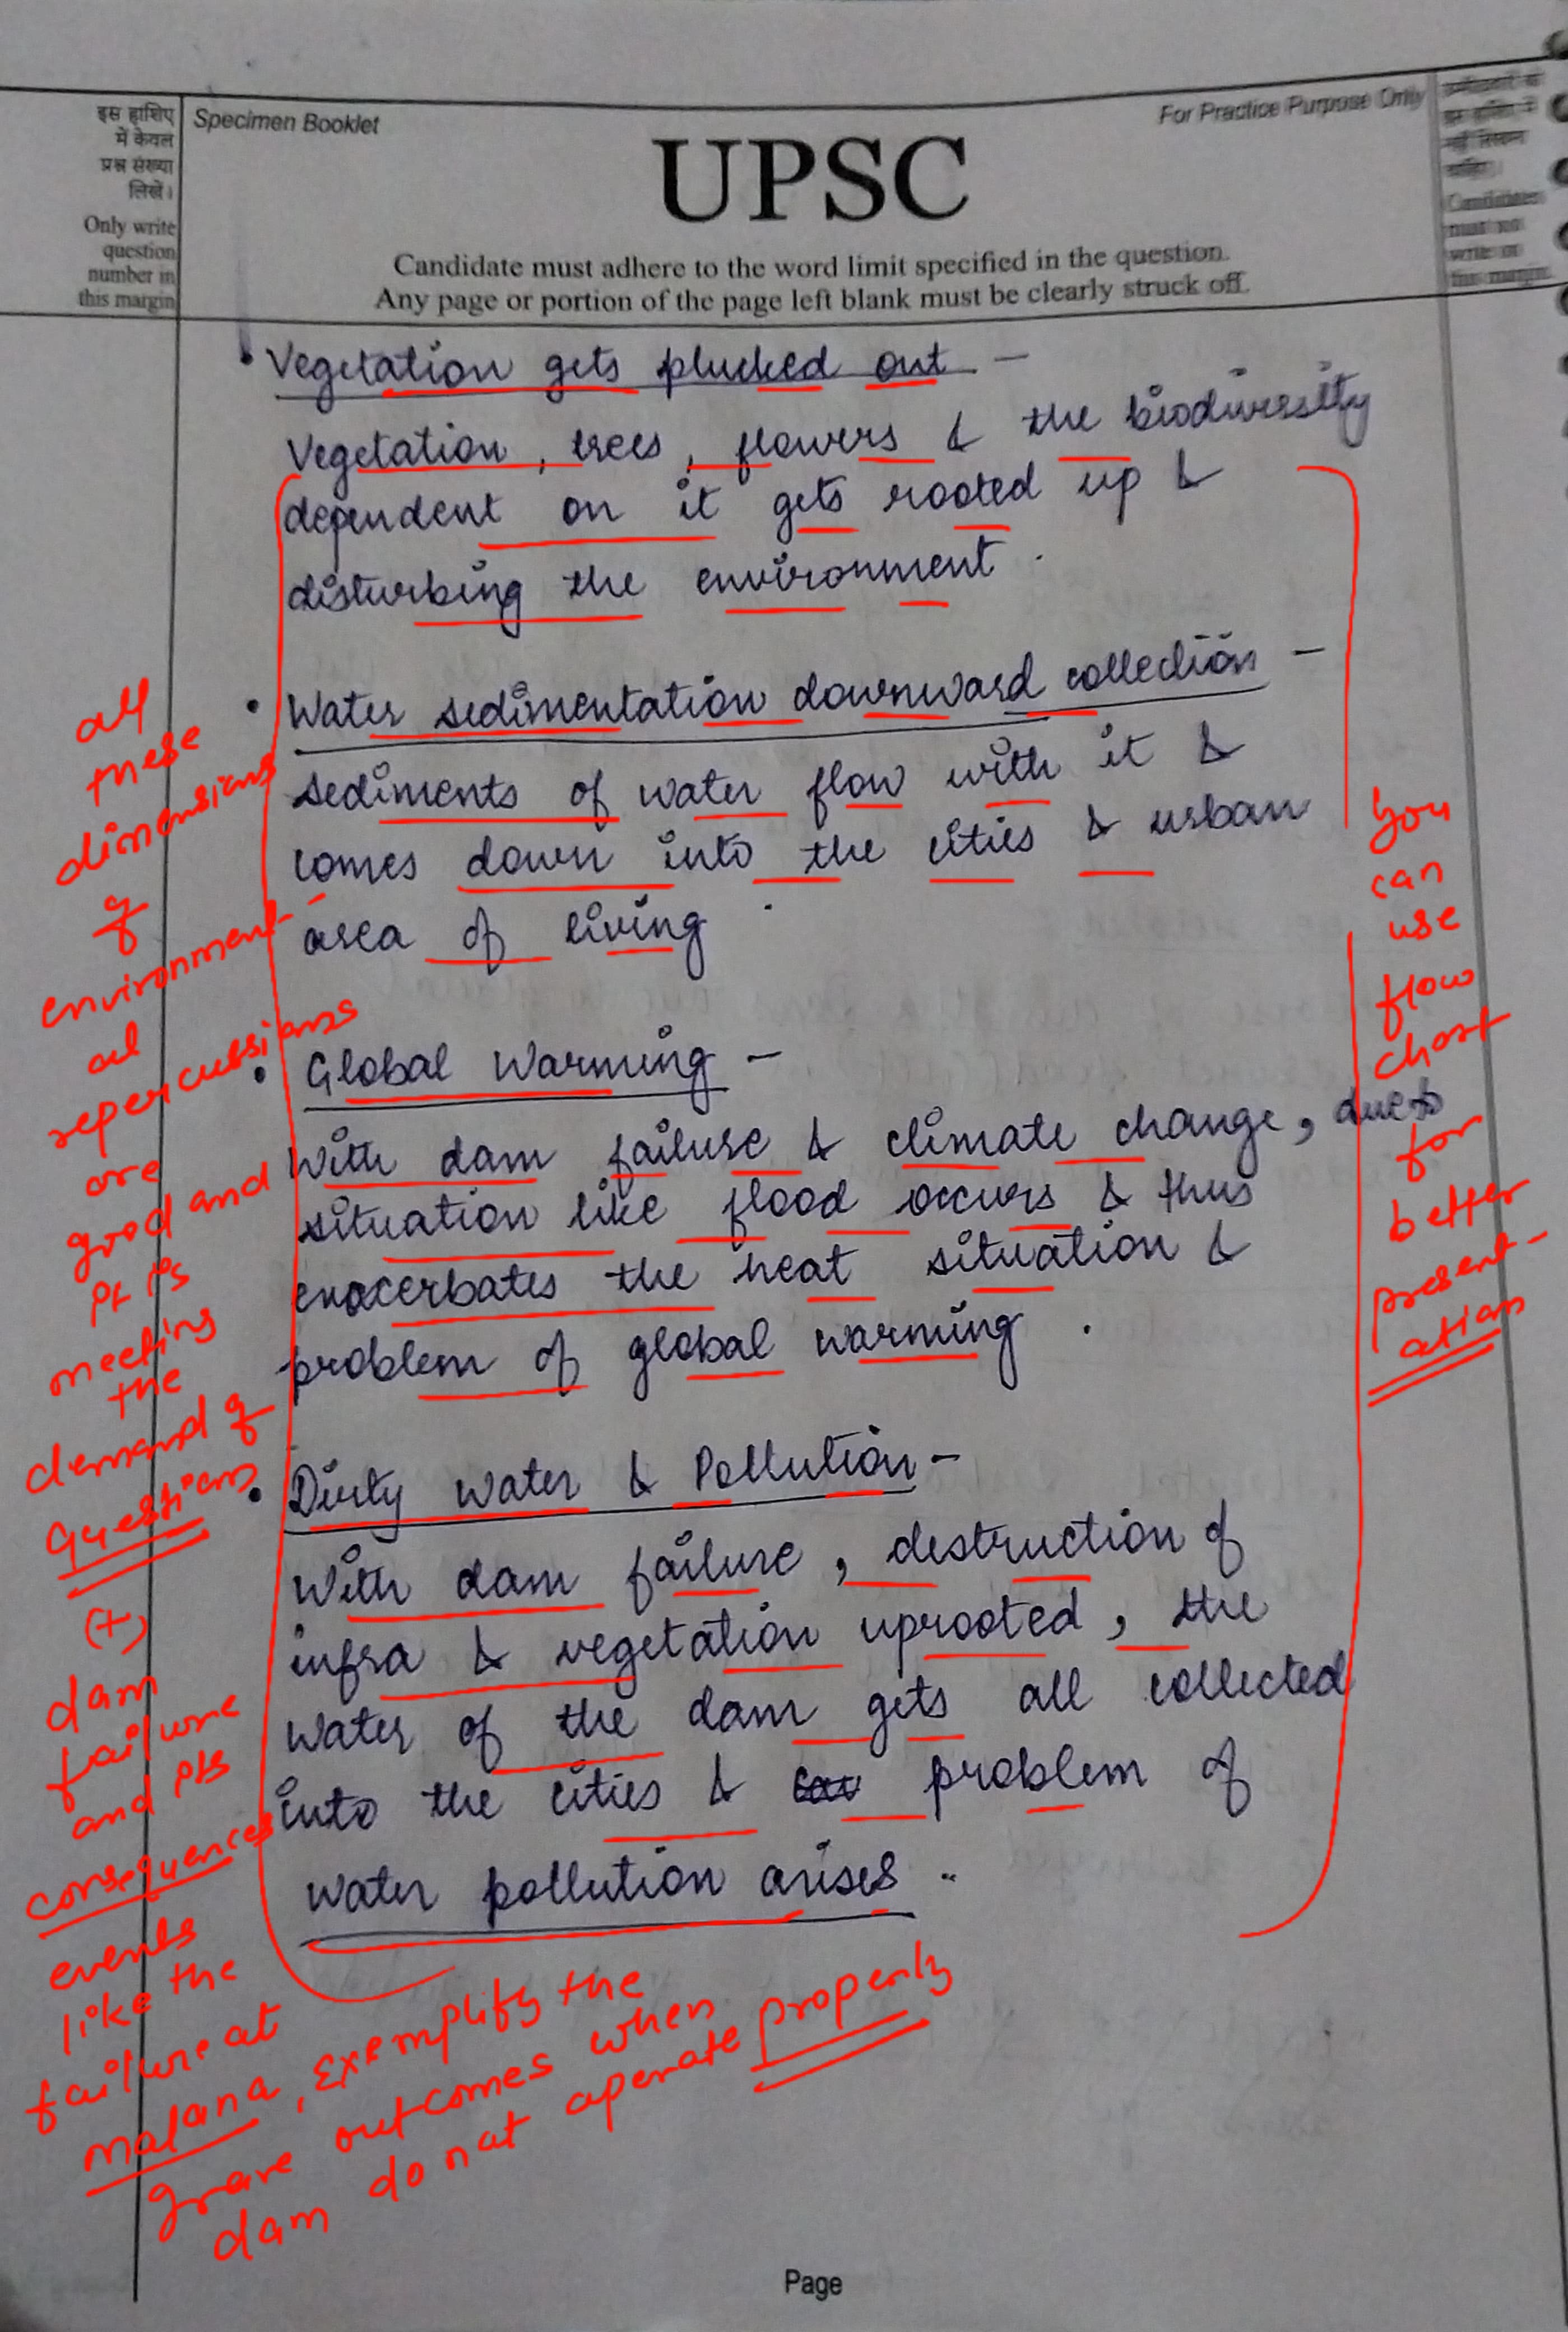 इस हाशिए
में केवल
प्रश्न संख्या
लिखें।
Only write
question
number in
this margin
Specimen Booklet
For Practice Purpose Only
UPSC
Candidate must adhere to the word limit specified in the question.
Any page or portion of the page left blank must be clearly struck off.
Candidates
must not
write on
this margin
• Vegetation gets plucked out –
Vegetation, trees, flowers & the biodiversity
dependent on it gets rooted up &
disturbing the environment.
• Water sedimentation downward collection –
sediments of water flow with it &
comes down into the cities & urban
area of living.
• Global Warming –
With dam failure & climate change, due to
situation like flood occurs & thus
exacerbates the heat situation &
problem of global warming.
• Dirty water & Pollution –
With dam failure, destruction of
infra & vegetation uprooted, the
water of the dam gets all collected
into the cities & problem of
water pollution arises.
all
these
dimensions
of
environment-
al
repercussions
are
good and
pt is
meeting
the
demand of
questions
(+)
dam
failure
and pts
consequences
events
like the
failure at
malana, exemplify the
grave outcomes when
dam do not operate properly
You
can
use
flow
chart
for
better
present-
ation
Page